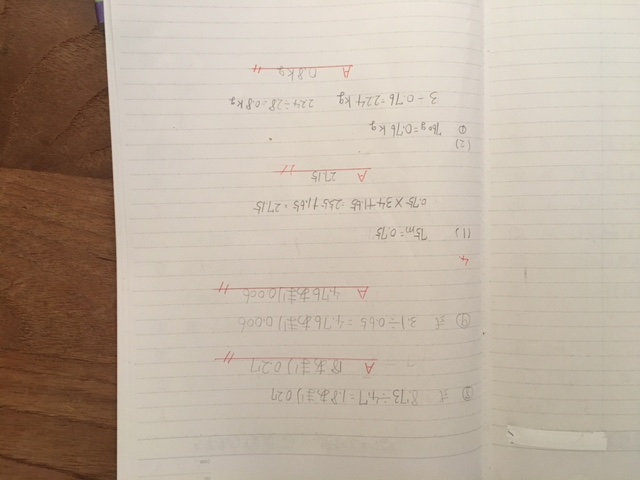 ⑧ 式 8.73÷4.7=1.8あまり0.27
A 1.8あまり0.27
⑨ 式 3.1÷0.65=4.76あまり0.006
A 4.76あまり0.006
4
(1) 75m=0.75
0.75×34+1.65=25.5+1.65=27.15
A 27.15
(2)
① 760g=0.76kg
3-0.76=2.24kg 2.24÷28=0.8kg
A 0.8kg